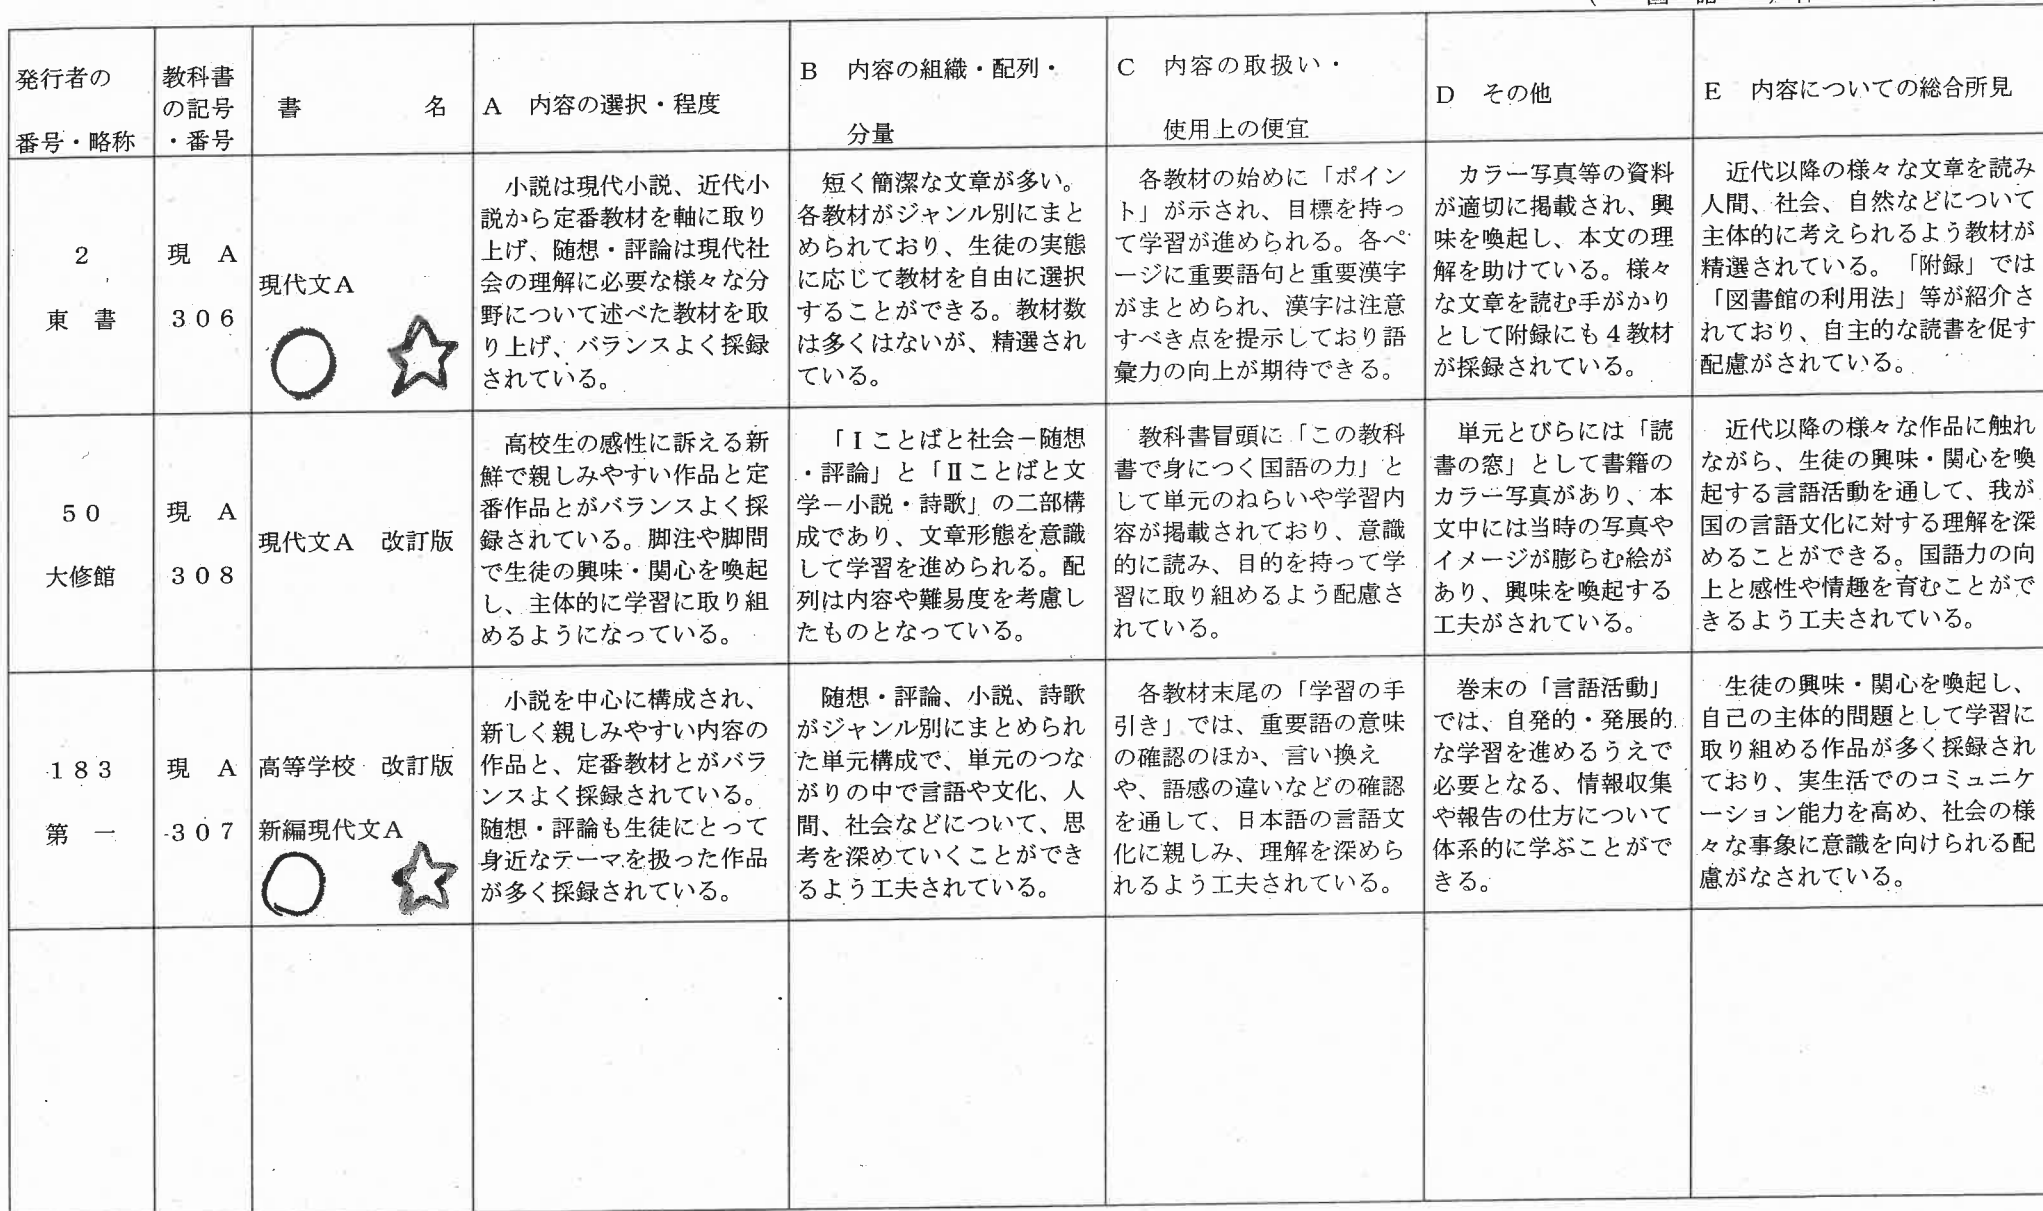 発行者の
番号・略称
教科書
の記号
・番号
書　　　　　名
A　内容の選択・程度
B　内容の組織・配列・
分量
C　内容の取扱い・
使用上の便宜
D　その他
E　内容についての総合所見
2
東　書
現　A
306
現代文A
小説は現代小説、近代小
説から定番教材を軸に取り
上げ、随想・評論は現代社
会の理解に必要な様々な分
野について述べた教材を取
り上げ、バランスよく採録
されている。
短く簡潔な文章が多い。
各教材がジャンル別にまと
められており、生徒の実態
に応じて教材を自由に選択
することができる。教材数
は多くはないが、精選され
ている。
各教材の始めに「ポイン
ト」が示され、目標を持っ
て学習が進められる。各ペ
ージに重要語句と重要漢字
がまとめられ、漢字は注意
すべき点を提示しており語
彙力の向上が期待できる。
カラー写真等の資料
が適切に掲載され、興
味を喚起し、本文の理
解を助けている。様々
な文章を読む手がかり
として附録にも4教材
が採録されている。
近代以降の様々な文章を読み
人間、社会、自然などについて
主体的に考えられるよう教材が
精選されている。「附録」では
「図書館の利用法」等が紹介さ
れており、自主的な読書を促す
配慮がされている。
50
大修館
現　A
308
現代文A　改訂版
高校生の感性に訴える新
鮮で親しみやすい作品と定
番作品とがバランスよく採
録されている。脚注や脚問
で生徒の興味・関心を喚起
し、主体的に学習に取り組
めるようになっている。
「Ⅰことばと社会－随想
・評論」と「Ⅱことばと文
学－小説・詩歌」の二部構
成であり、文章形態を意識
して学習を進められる。配
列は内容や難易度を考慮し
たものとなっている。
教科書冒頭に「この教科
書で身につく国語の力」と
して単元のねらいや学習内
容が掲載されており、意識
的に読み、目的を持って学
習に取り組めるよう配慮さ
れている。
単元とびらには「読
書の窓」として書籍の
カラー写真があり、本
文中には当時の写真や
イメージが膨らむ絵が
あり、興味を喚起する
工夫がされている。
近代以降の様々な作品に触れ
ながら、生徒の興味・関心を喚
起する言語活動を通して、我が
国の言語文化に対する理解を深
めることができる。国語力の向
上と感性や情趣を育むことがで
きるよう工夫されている。
183
第　一
現　A
307
高等学校　改訂版
新編現代文A
小説を中心に構成され、
新しく親しみやすい内容の
作品と、定番教材とがバラ
ンスよく採録されている。
随想・評論も生徒にとって
身近なテーマを扱った作品
が多く採録されている。
随想・評論、小説、詩歌
がジャンル別にまとめられ
た単元構成で、単元のつな
がりの中で言語や文化、人
間、社会などについて、思
考を深めていくことができ
るよう工夫されている。
各教材末尾の「学習の手
引き」では、重要語の意味
の確認のほか、言い換え
や、語感の違いなどの確認
を通して、日本語の言語文
化に親しみ、理解を深めら
れるよう工夫されている。
巻末の「言語活動」
では、自発的・発展的
な学習を進めるうえで
必要となる、情報収集
や報告の仕方について
体系的に学ぶことがで
きる。
生徒の興味・関心を喚起し、
自己の主体的問題として学習に
取り組める作品が多く採録され
ており、実生活でのコミュニケ
ーション能力を高め、社会の様
々な事象に意識を向けられる配
慮がなされている。